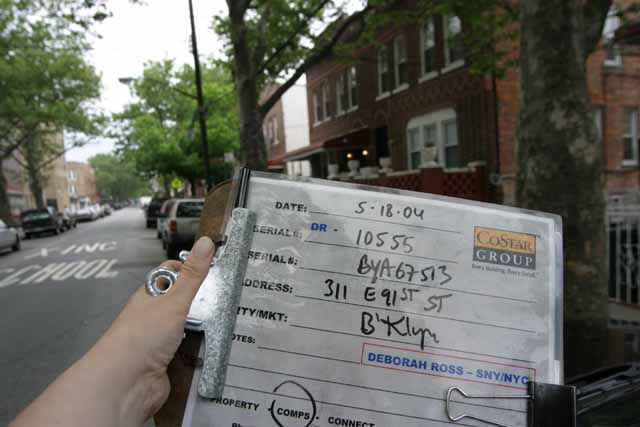 DATE: 5-18-04
SERIAL#: DR - 10555
SERIAL#: BYA67513
ADDRESS: 311 E 91ST ST
CITY/MKT: B'Klyn
NOTES:
DEBORAH ROSS – SNY/NYC
PROPERTY - COMPS - CONNECT
COSTAR
GROUP
Every building. Every detail.
X-ING
SCHOOL